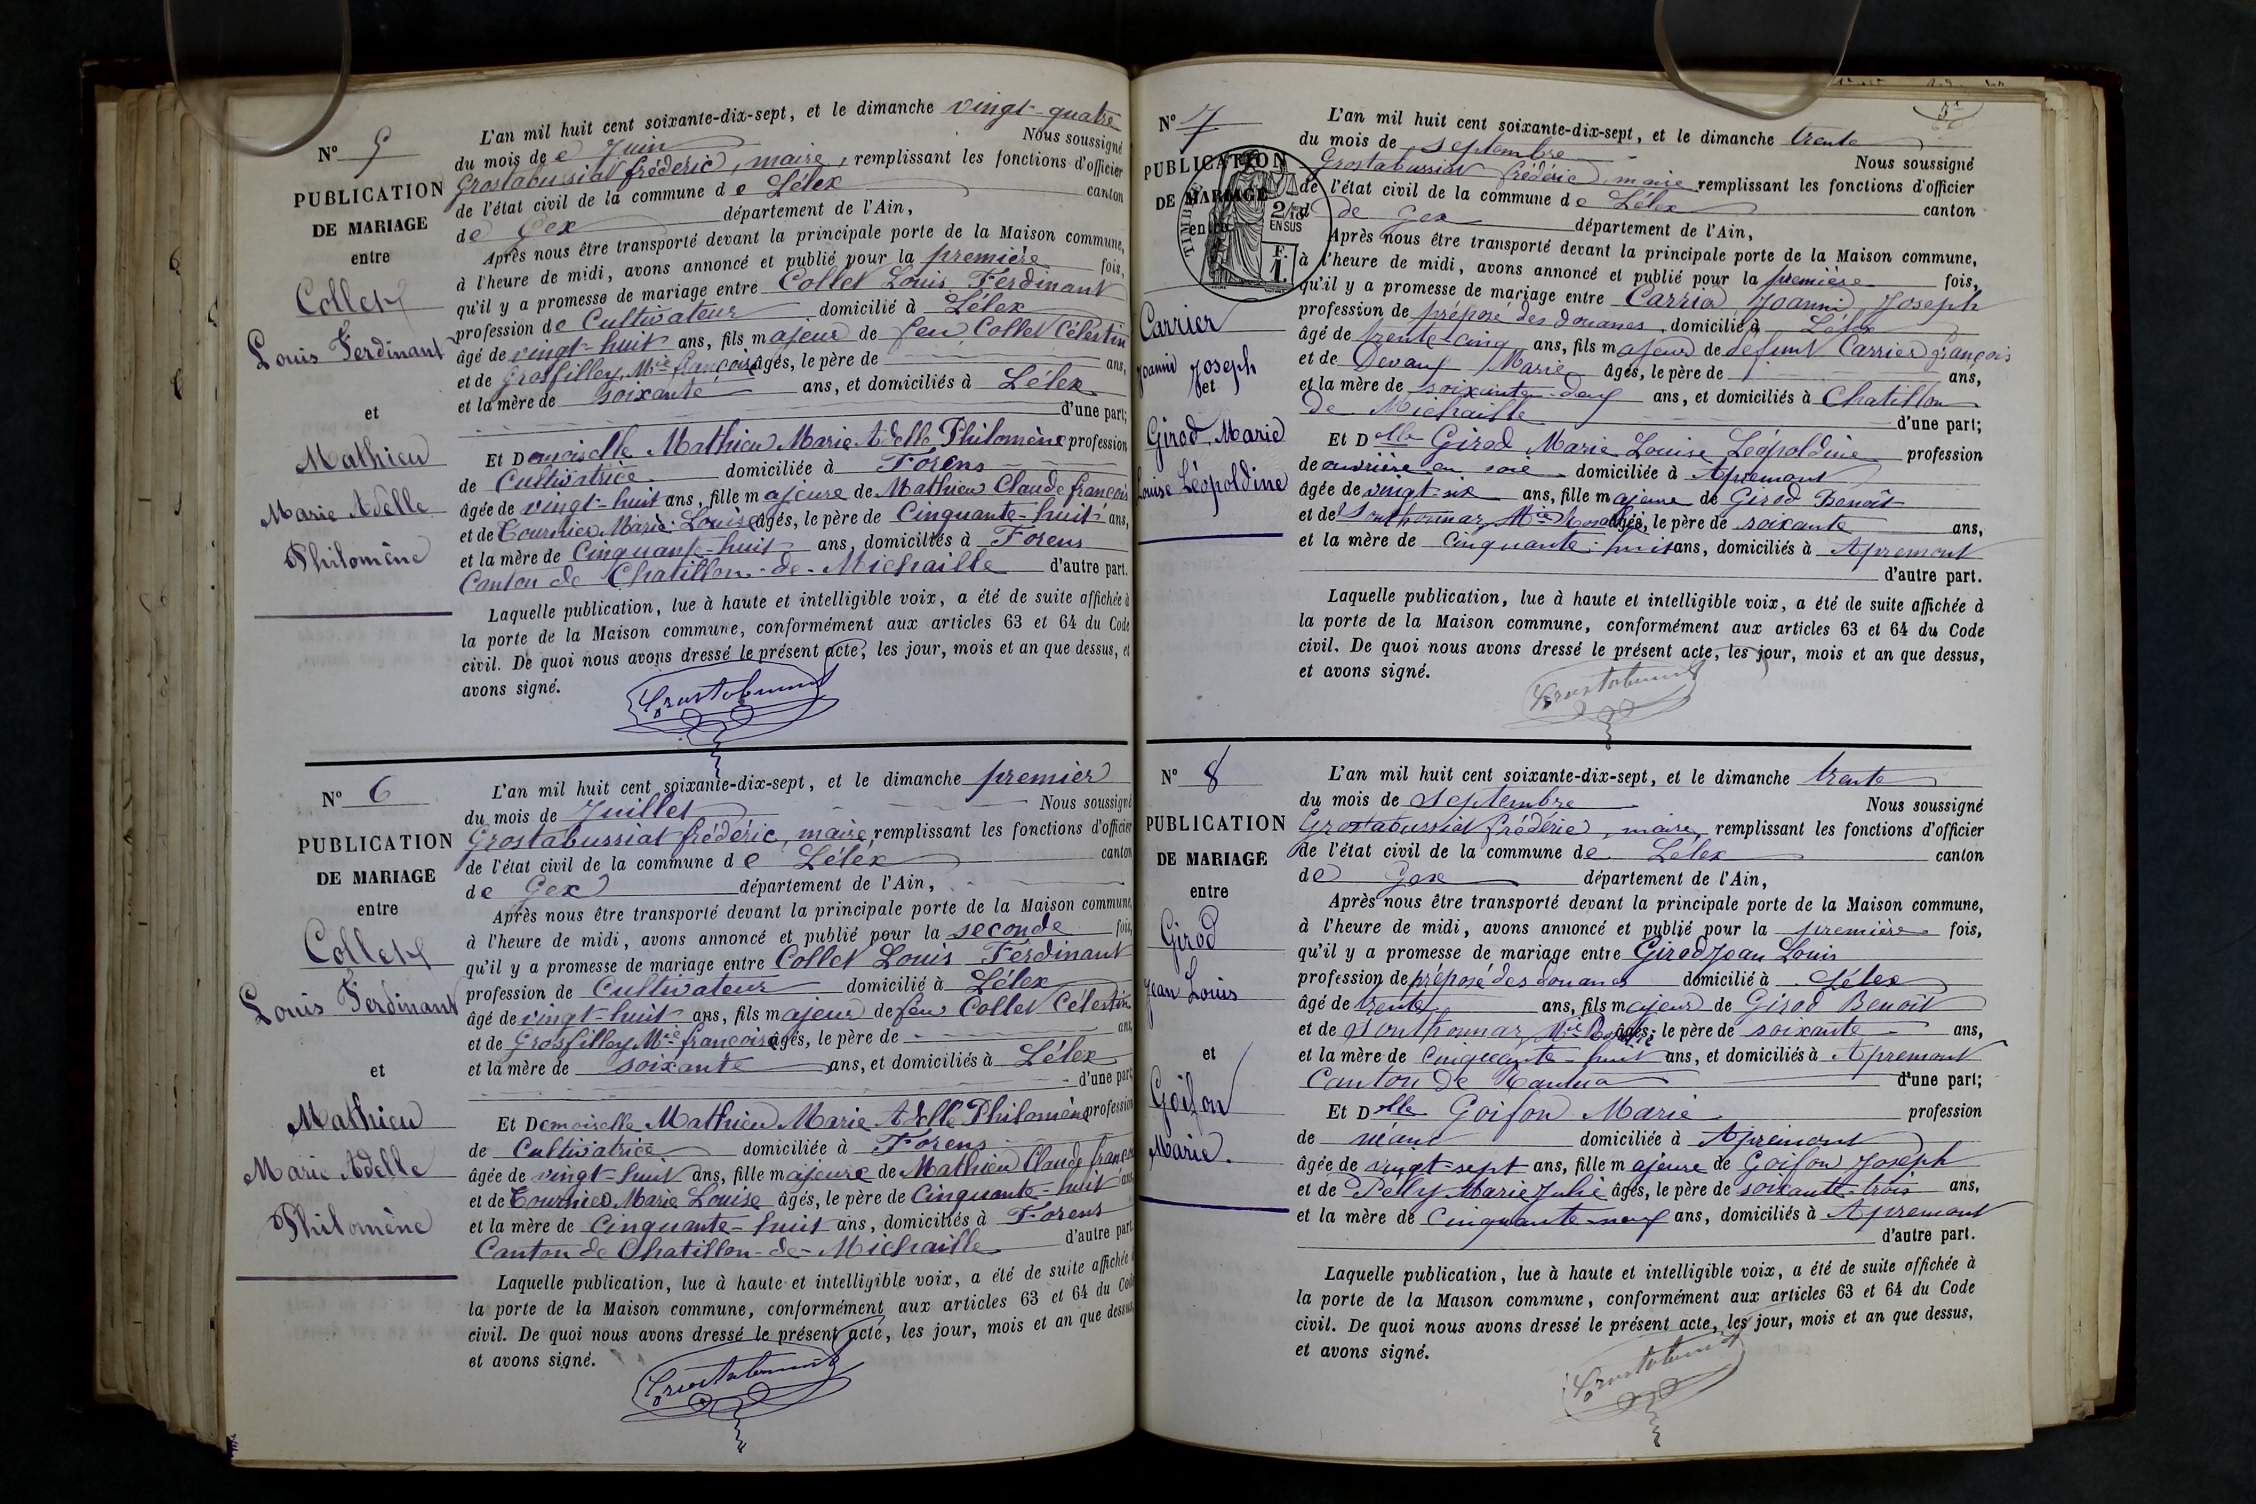 N° 5
PUBLICATION
DE MARIAGE
entre
Collet
Louis Ferdinant
et
Mathieu
Marie Adelle
Philomène
L'an mil huit cent soixante-dix-sept, et le dimanche vingt-quatre
du mois de Juin Nous soussigné
Grostabussiat frédéric, maire, remplissant les fonctions d'officier
de l'état civil de la commune de Lélex canton
de Gex département de l'Ain,
Après nous être transporté devant la principale porte de la Maison commune,
à l'heure de midi, avons annoncé et publié pour la première fois,
qu'il y a promesse de mariage entre Collet Louis Ferdinant
profession de Cultivateur domicilié à Lélex
âgé de vingt-huit ans, fils majeur de feu Collet Célestin
et de Grosfilley Mie françoise âgés, le père de ans,
et la mère de soixante ans, et domiciliés à Lélex
d'une part;
Et Demoiselle Mathieu Marie Adelle Philomène profession
de Cultivatrice domiciliée à Forens
âgée de vingt-huit ans, fille majeure de Mathieu Claude françois
et de Tournier Marie Louise âgés, le père de Cinquante-huit ans,
et la mère de Cinquante-huit ans, domiciliés à Forens
Canton de Chatillon-de-Michaille d'autre part.
Laquelle publication, lue à haute et intelligible voix, a été de suite affichée à
la porte de la Maison commune, conformément aux articles 63 et 64 du Code
civil. De quoi nous avons dressé le présent acte, les jour, mois et an que dessus, et
avons signé.
Grostabussiat
N° 6
PUBLICATION
DE MARIAGE
entre
Collet
Louis Ferdinant
et
Mathieu
Marie Adelle
Philomène
L'an mil huit cent soixante-dix-sept, et le dimanche premier
du mois de Juillet Nous soussigné
Grostabussiat frédéric, maire, remplissant les fonctions d'officier
de l'état civil de la commune de Lélex canton
de Gex département de l'Ain,
Après nous être transporté devant la principale porte de la Maison commune,
à l'heure de midi, avons annoncé et publié pour la seconde fois,
qu'il y a promesse de mariage entre Collet Louis Ferdinant
profession de Cultivateur domicilié à Lélex
âgé de vingt-huit ans, fils majeur de feu Collet Célestin
et de Grosfilley Mie françoise âgés, le père de ans,
et la mère de soixante ans, et domiciliés à Lélex
d'une part
Et Demoiselle Mathieu Marie Adelle Philomène profession
de Cultivatrice domiciliée à Forens
âgée de vingt-huit ans, fille majeure de Mathieu Claude françois
et de Tournier Marie Louise âgés, le père de Cinquante-huit ans
et la mère de Cinquante-huit ans, domiciliés à Forens
Canton de Chatillon-de-Michaille d'autre part
Laquelle publication, lue à haute et intelligible voix, a été de suite affichée à
la porte de la Maison commune, conformément aux articles 63 et 64 du Code
civil. De quoi nous avons dressé le présent acte, les jour, mois et an que dessus,
et avons signé.
Grostabussiat
N° 7
PUBLICATION
DE MARIAGE
entre
TIMBRE
2/10
EN SUS
F.
1.
Carrier
Joanni Joseph
et
Girod Marie
Louise Léopoldine
L'an mil huit cent soixante-dix-sept, et le dimanche trente
du mois de septembre Nous soussigné
Grostabussiat frédéric, maire remplissant les fonctions d'officier
de l'état civil de la commune de Lélex canton
de Gex département de l'Ain,
Après nous être transporté devant la principale porte de la Maison commune,
à l'heure de midi, avons annoncé et publié pour la première fois,
qu'il y a promesse de mariage entre Carrier Joanni Joseph
profession de préposé des douanes domicilié à Lélex
âgé de trente-cinq ans, fils majeur de defunt Carrier françois
et de Devauf Marie âgés, le père de ans,
et la mère de soixante-deux ans, et domiciliés à Chatillon
de Michaille d'une part;
Et Delle Girod Marie Louise Léopoldine profession
de ouvrière en soie domiciliée à Apremont
âgée de vingt-six ans, fille majeure de Girod Benoît
et de Sonthonnax Mie Rosalie âgés, le père de soixante ans,
et la mère de Cinquante-huit ans, domiciliés à Apremont
d'autre part.
Laquelle publication, lue à haute et intelligible voix, a été de suite affichée à
la porte de la Maison commune, conformément aux articles 63 et 64 du Code
civil. De quoi nous avons dressé le présent acte, les jour, mois et an que dessus,
et avons signé.
Grostabussiat
N° 8
PUBLICATION
DE MARIAGE
entre
Girod
Jean Louis
et
Goifon
Marie.
L'an mil huit cent soixante-dix-sept, et le dimanche trente
du mois de septembre Nous soussigné
Grostabussiat frédéric, maire, remplissant les fonctions d'officier
de l'état civil de la commune de Lélex canton
de Gex département de l'Ain,
Après nous être transporté devant la principale porte de la Maison commune,
à l'heure de midi, avons annoncé et publié pour la première fois,
qu'il y a promesse de mariage entre Girod Jean Louis
profession de préposé des douanes domicilié à Lélex
âgé de trente ans, fils majeur de Girod Benoît
et de Sonthonnax Mie Rosalie âgés, le père de soixante ans,
et la mère de Cinquante-huit ans, et domiciliés à Apremont
Canton de Nantua d'une part;
Et Delle Goifon Marie profession
de néant domiciliée à Apremont
âgée de vingt-sept ans, fille majeure de Goifon Joseph
et de Pelly Marie Julie âgés, le père de soixante-trois ans,
et la mère de Cinquante-neuf ans, domiciliés à Apremont
d'autre part.
Laquelle publication, lue à haute et intelligible voix, a été de suite affichée à
la porte de la Maison commune, conformément aux articles 63 et 64 du Code
civil. De quoi nous avons dressé le présent acte, les jour, mois et an que dessus,
et avons signé.
Grostabussiat